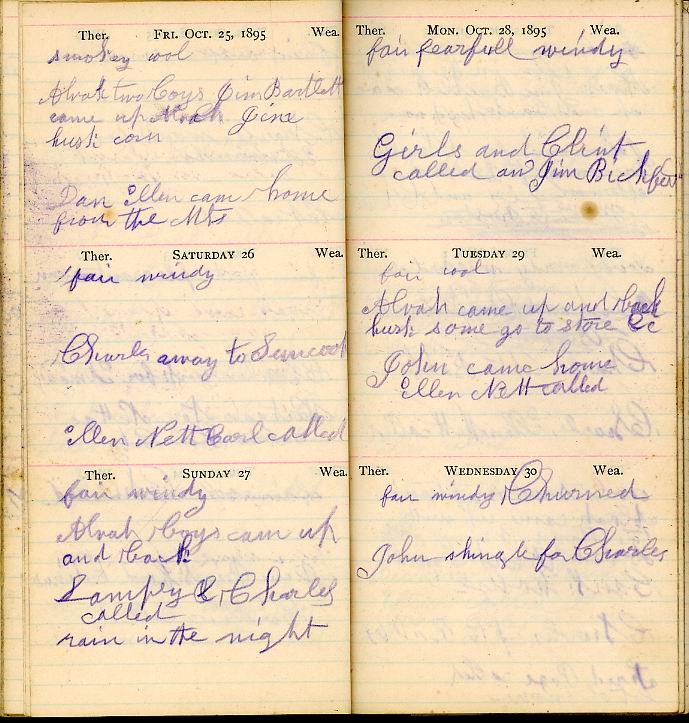 Ther. FRI. OCT. 25, 1895 Wea.
smokey cool
Alvah two boys Jim Bartlett
came up Alvah Jim
husk corn
Dan Ellen cam home
from the Mts
Ther. SATURDAY 26 Wea.
fair windy
Charles away to Suncook
Ellen Nett Carl called
Ther. SUNDAY 27 Wea.
fair windy
Alvah & boys cam up
and back
Lamprey & Charles
called
rain in the night
Ther. MON. OCT. 28, 1895 Wea.
fair fearfull windy
Girls and Clint
called an Jim
Ther. TUESDAY 29 Wea.
fair cool
Alvah came up and back
husk some go to store &c
John came home
Ellen Nett called
Ther. WEDNESDAY 30 Wea.
fair windy Churned
John shingle for Charles